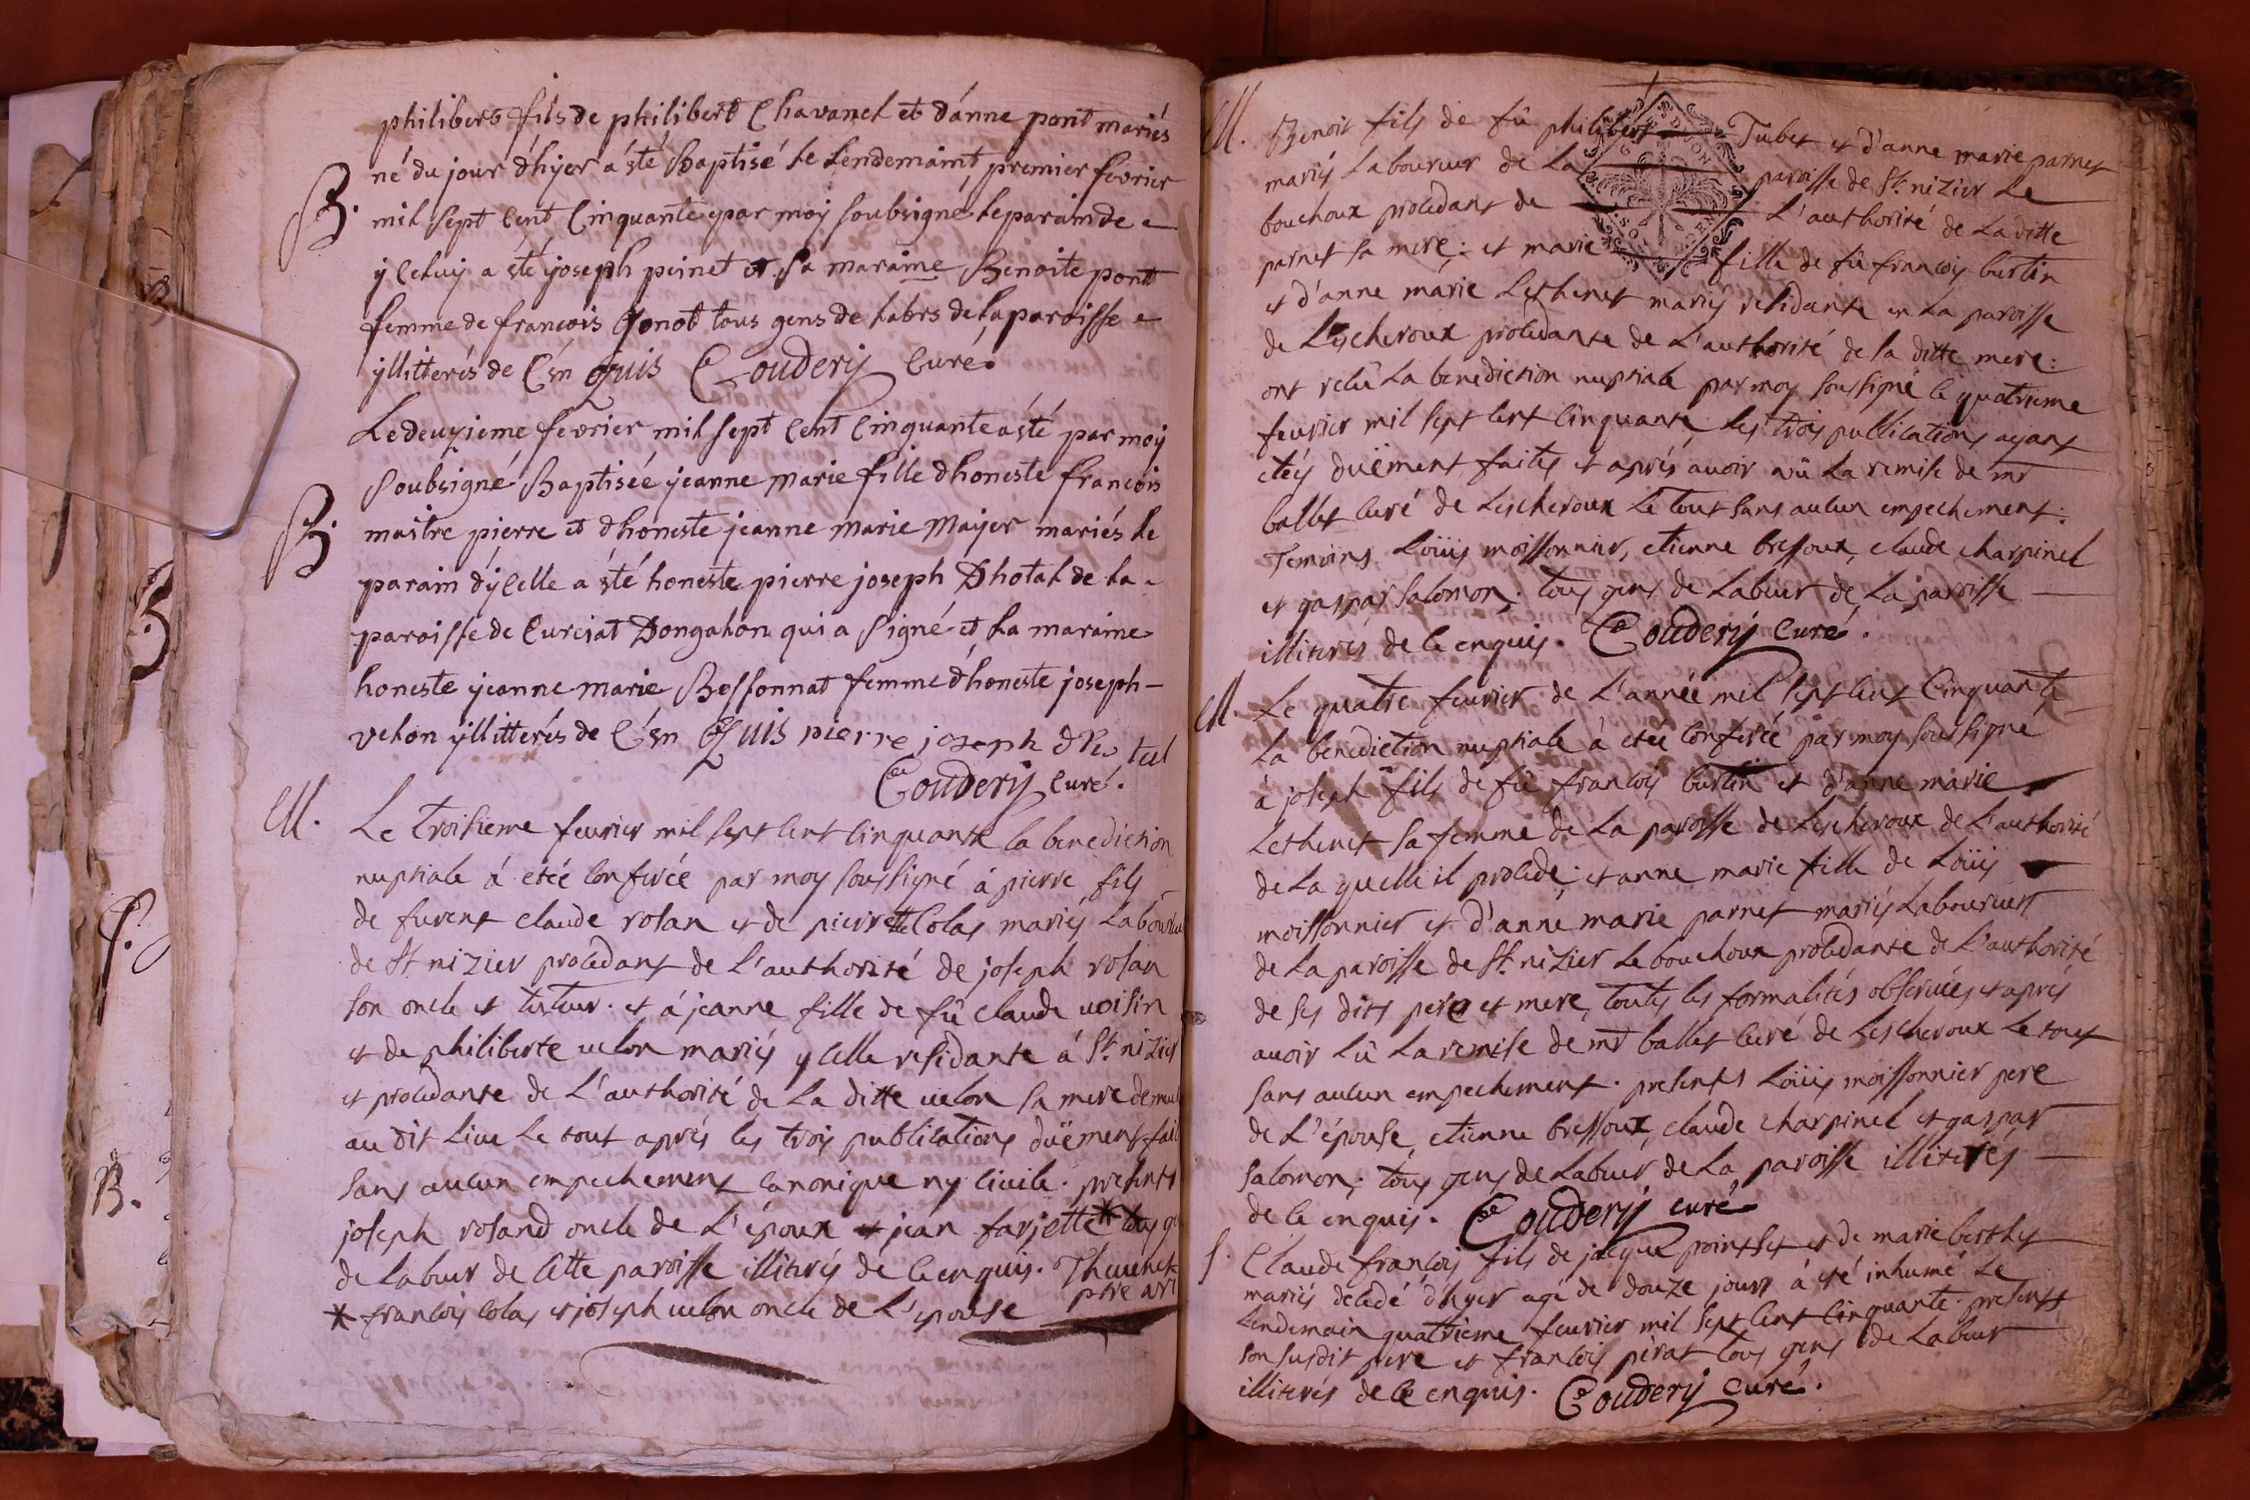 philibert fils de philibert Chavanel et d'anne pont mariés
né du jour d'hyer a ésté Baptisé le Lendemaint premier fevrier
B. mil sept Cent Cinquante par moy soubsigné, le parain de
yceluy a été joseph peinet et sa maraine Benoite pont
femme de francois Gonot tous gens de labrs de la paroisse
yllitterés de C'en Quis Couderij Curé.
Le deuxieme fevrier mil sept Cent Cinquante a ésté par moy
soubsigné Baptisée jeanne marie fille d'honeste francois
B. maitre pierre et d'honeste jeanne marie Mayer mariés le
parain d'ycelle a été honeste pierre joseph Dhotal de la
paroisse de Curciat Dongalon qui a signé et la maraine
honeste jeanne marie Bessonnat femme d'honeste joseph
velon yllitterés de C'en Quis pierre joseph
Couderij Curé.
M. Le troisieme feurier mil sept cent cinquante la benediction
nuptiale á etéé conferéé par moy soussigné á pierre fils
de furent claude rosan et de pierrette Colas mariés
de St nizier procedant de L'authorité de joseph rosan
son oncle et tuteur. et á jeanne fille de fû claude uoisin
et de philiberte uelon mariés ycelle residante á St. nizier
et procedante de L'authorité de La ditte uelon sa mere
au dit Lieu Le tout aprés les trois publications duëment
sans aucun empechement canonique ny ciuile. presents
joseph rosand oncle de L'époux et jean farjette* tous
de Labeur de Cette paroisse illiterés de ce enquis.
* francois colas et joseph uelon oncle de L'epouse
M. Benoit fils de fû philibert Tubet et d'anne marie parnet
mariés Laboureur de La paroisse de St. nizier Le
bouchoux procedant de L'authorité de La ditte
parnet sa mere: et marie fille de fû francois burtin
et d'anne marie Lethenet mariés residante en La paroisse
de Lescheroux procedante de L'authorité de la ditte mere:
ont recû La benediction nuptiale par moy soussigné le quatrieme
feurier mil sept cent cinquante Les trois publications ayant
etéés duëment faites et aprés auoir uû La remise de mr
ballet curé de Lescheroux Le tout sans aucun empechement:
Temoins Loüis moissonnier, etienne bressoux, claude charpinel
et gaspar salomon; tous gens de Labeur de La paroisse
illiterés de ce enquis. Couderij Curé.
M. Le quatre feurier de L'année mil sept cent Cinquante
La benediction nuptiale á etéé conferéé par moy soussigné
á joseph fils de fû francois burtin et d'anne marie
Lethenet sa femme de La paroisse de Lescheroux de L'authorité
de La quelle il procede; et anne marie fille de Loüis
moissonnier et d'anne marie parnet mariés Laboureurs
de La paroisse de St. nizier Le bouchoux procedante de L'authorité
de ses dits pere et mere, toutes les formalités obseruéés et aprés
auoir Lû La remise de mr ballet curé de Lescheroux Le tout
sans aucun empechement. presents Loüis moissonnier pere
de L'épouse, etienne bressoux, claude charpinel et gaspar
salomon; tous gens de Labeur de La paroisse illiterés
de ce enquis. Couderij curé
S. Claude francois fils de jacque pointet et de marie berthet
mariés decedé d'hyer agé de douze jours á eté inhumé Le
Lendemain quatrieme feurier mil sept cent cinquante. presents
son susdit pere et francois perat tous gens de Labeur
illiterés de ce enquis. Couderij curé.